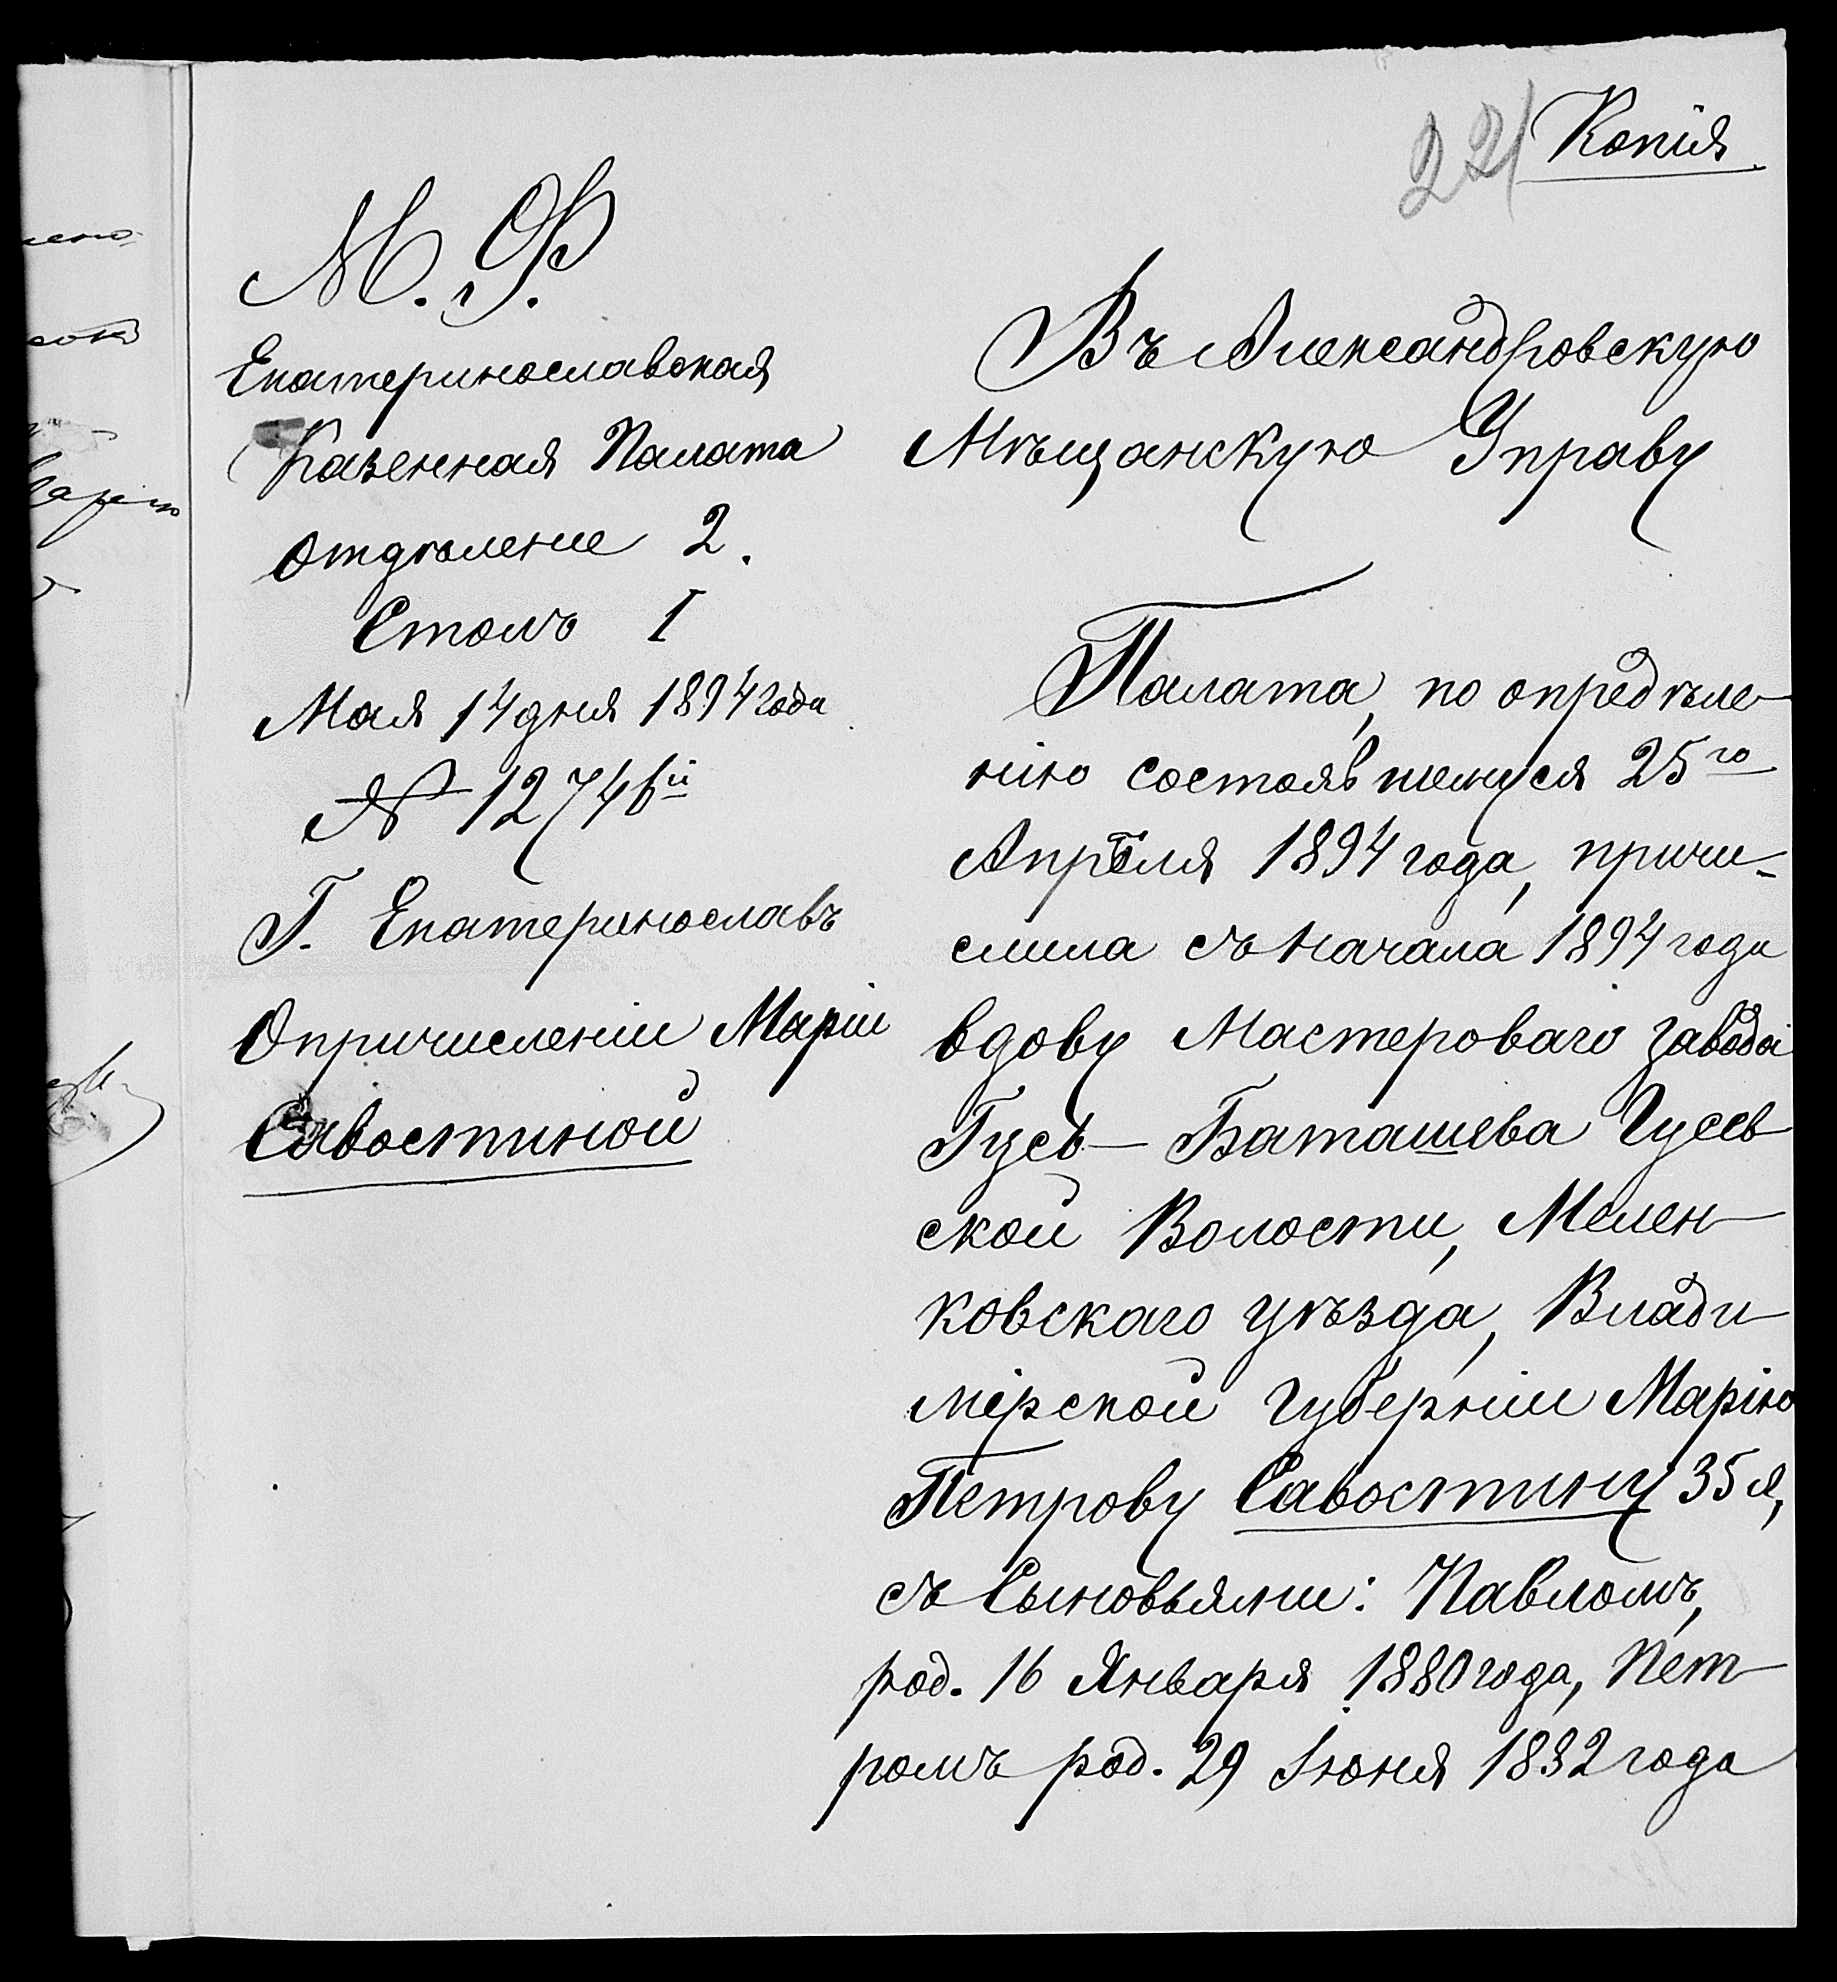 221
Копія
М. Ф.
Екатеринославская
Казенная Палата
Отдѣленіе 2.
Столъ 1
Мая 14 дня 1894 года
№ 12746й
Г. Екатеринославъ
О причисленіи Маріи
Савостиной
Въ Александровскую
Мѣщанскую Управу
Палата, по опредѣле-
нію состоявшемуся 25го
Апрѣля 1894 года, причи-
слила съ начала 1894 года
вдову Мастероваго завода
Гусь-Баташева Гусев-
ской Волости, Мелен-
ковскаго уѣзда, Влади-
мірской губерніи Марію
Петрову Савостину 35 л,
съ Сыновьями: Павломъ,
род. 16 Января 1880 года, Пет-
ромъ род. 29 Іюня 1882 года